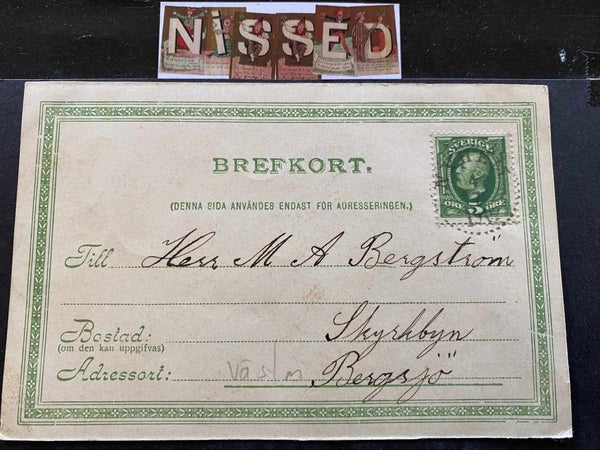 NISSED
BREFKORT.
SVERIGE
(DENNA SIDA ANVÄNDES ENDAST FÖR ADRESSERINGEN.)
ÖRE 5 ÖRE
Till Herr M A Bergström
Bostad: Skyrkbyn
(om den kan uppgifvas)
Adressort: Bergsjö